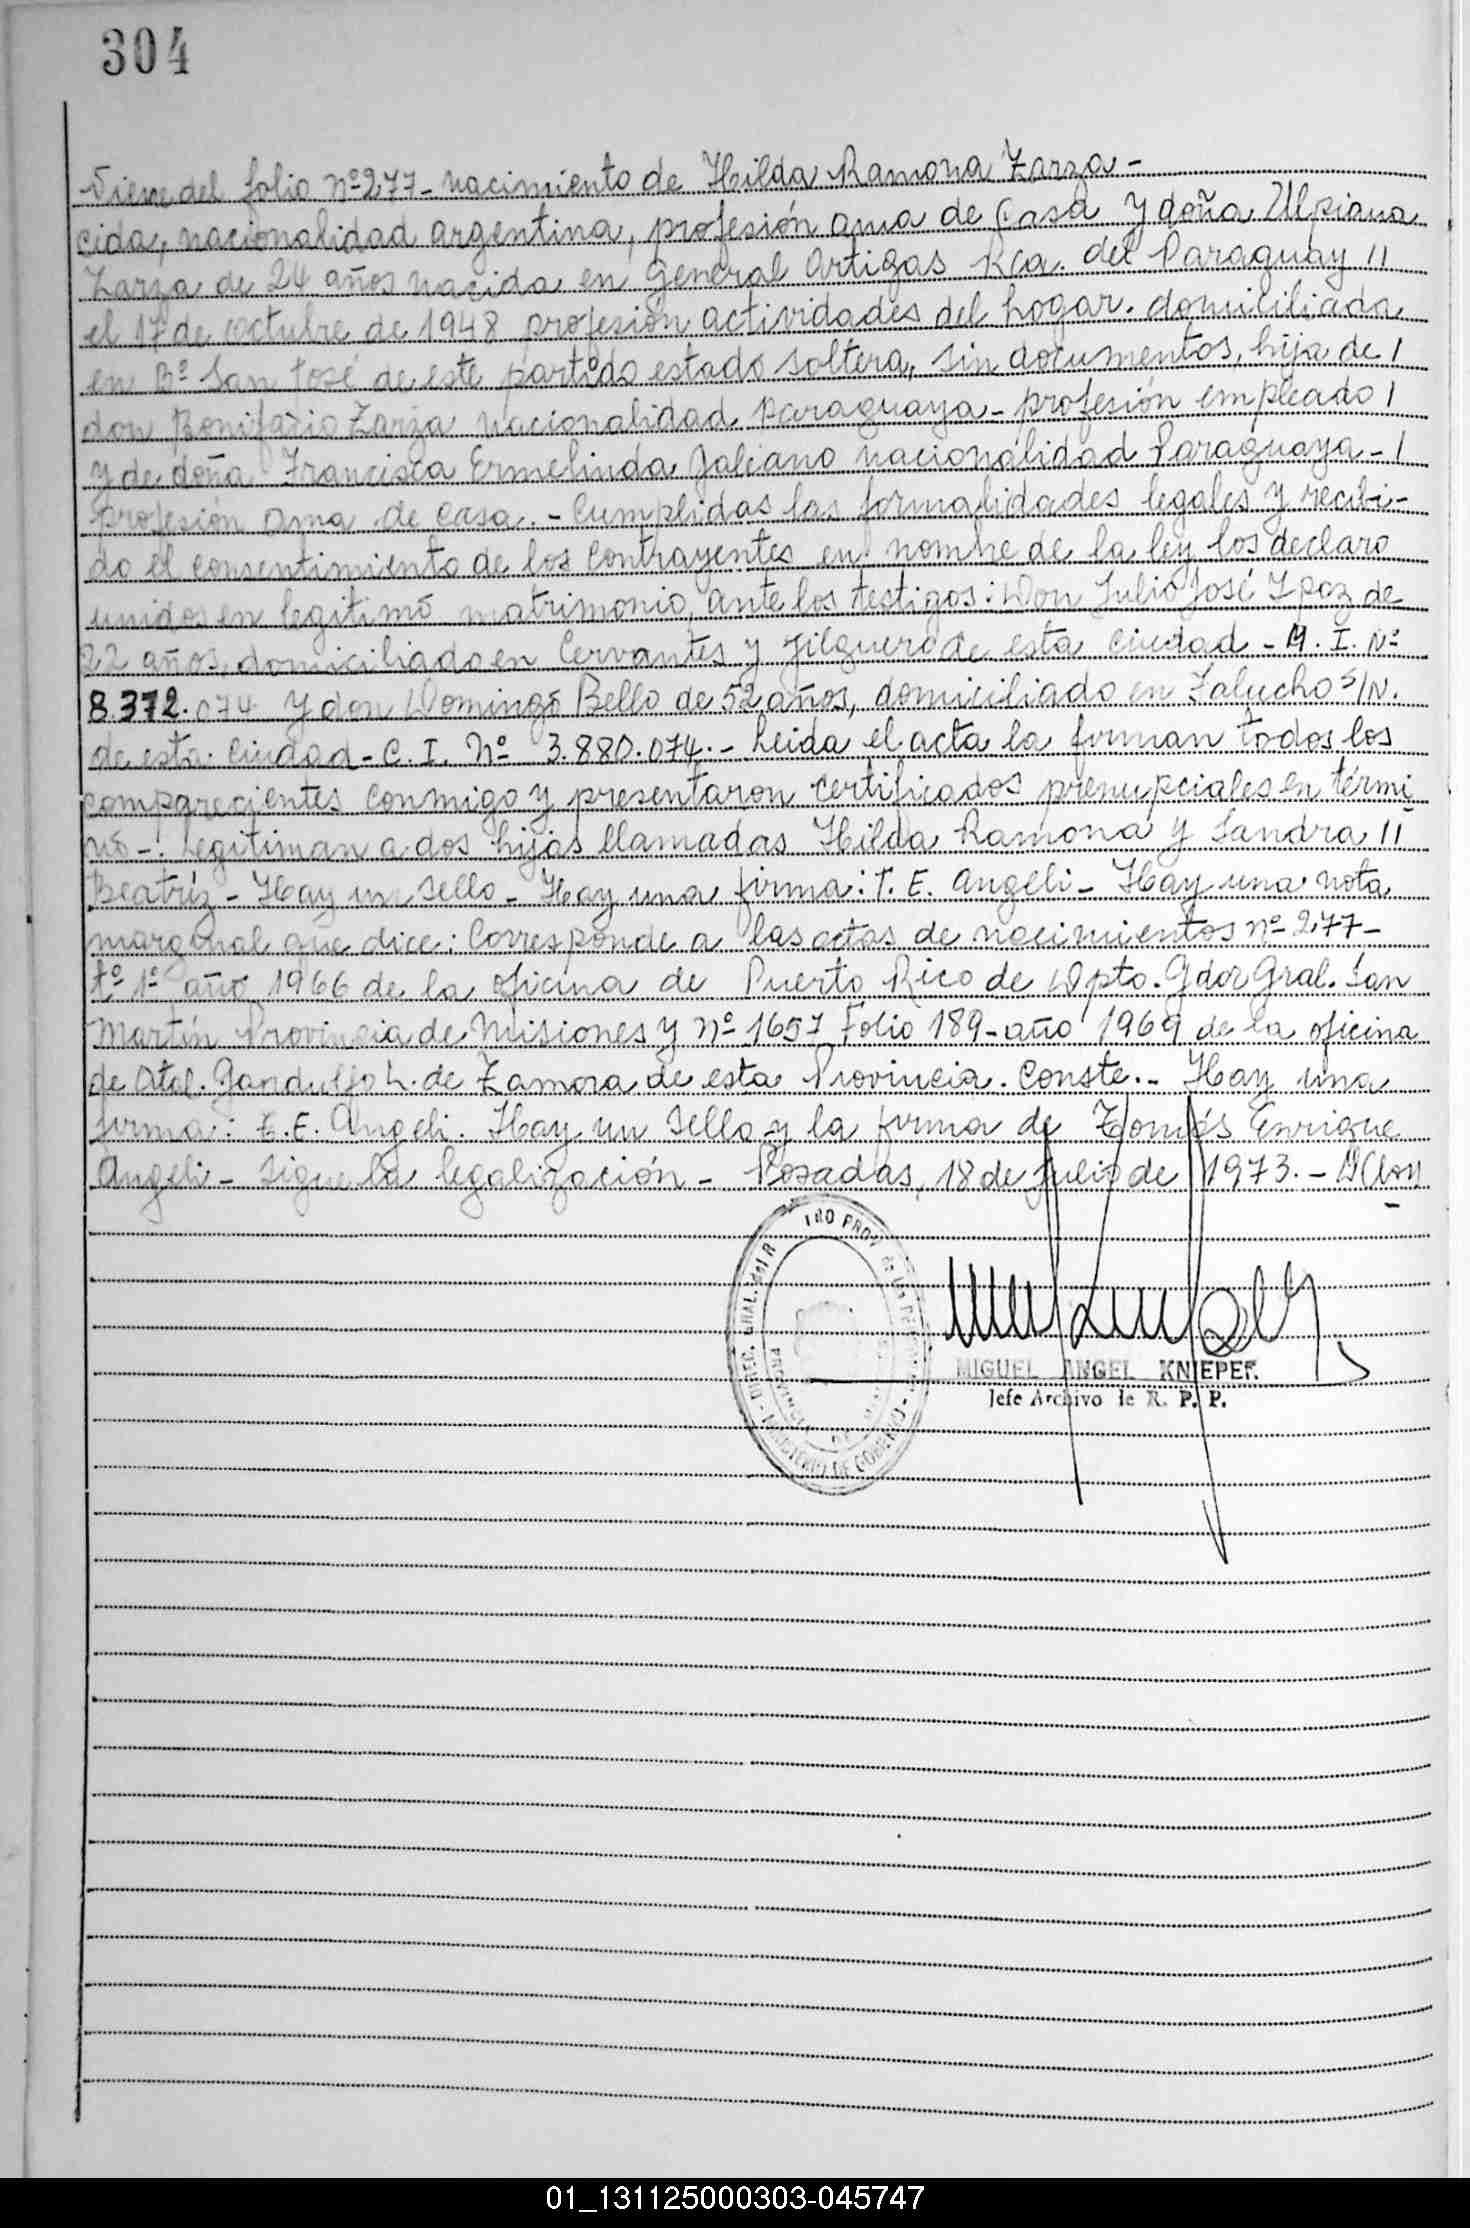 304
Viene del folio nº 277 - nacimiento de Hilda Ramona Zarza -
cida, nacionalidad argentina, profesión ama de casa y doña Ulpiana
Zarza de 24 años nacida en General Artigas Rca. del Paraguay //
el 17 de octubre de 1948 profesión actividades del hogar. domiciliada
en Bº San José de este partido estado soltera, sin documentos, hija de /
don Bonifacio Zarza nacionalidad Paraguaya - profesión empleado /
y de doña Francisca Ermelinda Galeano nacionalidad Paraguaya - /
profesión ama de casa. - Cumplidas las formalidades legales y recibi-
do el consentimiento de los contrayentes en nombre de la ley los declaro
unidos en legitimó matrimonio, ante los testigos: Don Julio José Ipaz de
22 años, domiciliado en Cervantes y Jilguero de esta ciudad - M. I. Nº
8.372.074 y don Domingo Bello de 52 años, domiciliado en Falucho S/N.
de esta ciudad - C. I. Nº 3.880.074. - Leida el acta la firman todos los
comparecientes conmigo y presentaron certificados prenupciales en térmi
nó -. Legitiman a dos hijas llamadas Hilda Ramona y Sandra //
Beatríz - Hay un sello - Hay una firma: T. E. Angeli - Hay una nota
marginal que dice: Corresponde a las actas de nacimientos nº 277 -
tº 1º año 1966 de la oficina de Puerto Rico de Dpto. Gdor Gral. San
Martín Provincia de Misiones y Nº 1657 Folio 189 - año 1969 de la oficina
de Atal. Gandulfo L. de Zamora de esta Provincia. Conste. - Hay una
firma: T. E. Angeli. Hay un sello y la firma de Tomás Enrique
Angeli - Sigue la legalización - Posadas, 18 de julio de 1973. -
MIGUEL ANGEL KNIEPER
Jefe Archivo de R. P. P.
DIREC. GRAL. del R PROV. de las
MINISTERIO DE GOBIERNO
PROVINCIA
01_131125000303-045747